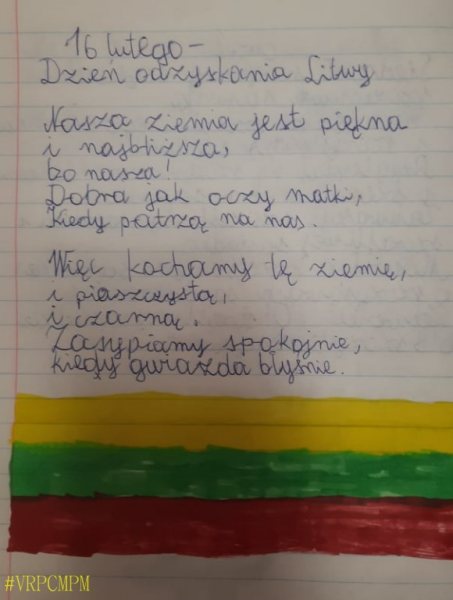 16 lutego –
Dzień odzyskania Litwy
Nasza ziemia jest piękna
i najbliższa,
bo nasza!
Dobra jak oczy matki,
Kiedy patrzą na nas.
Więc kochamy tę ziemię,
i piaszczystą,
i czarną.
Zasypiamy spokojnie,
kiedy gwiazda błyśnie.
#VRPCMPM